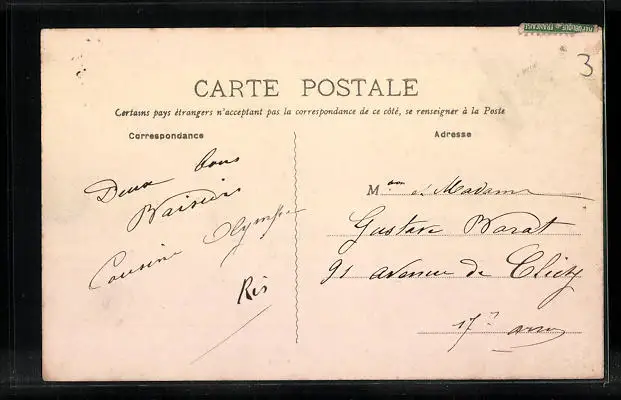 RÉPUBLIQUE FRANÇAISE
3
CARTE POSTALE
Certains pays étrangers n'acceptant pas la correspondance de ce côté, se renseigner à la Poste
Correspondance
Deux bons
Baisers
Cousine Olympe
Adresse
M et Madame
Gustave Barat
91 avenue de Clichy
17e arr